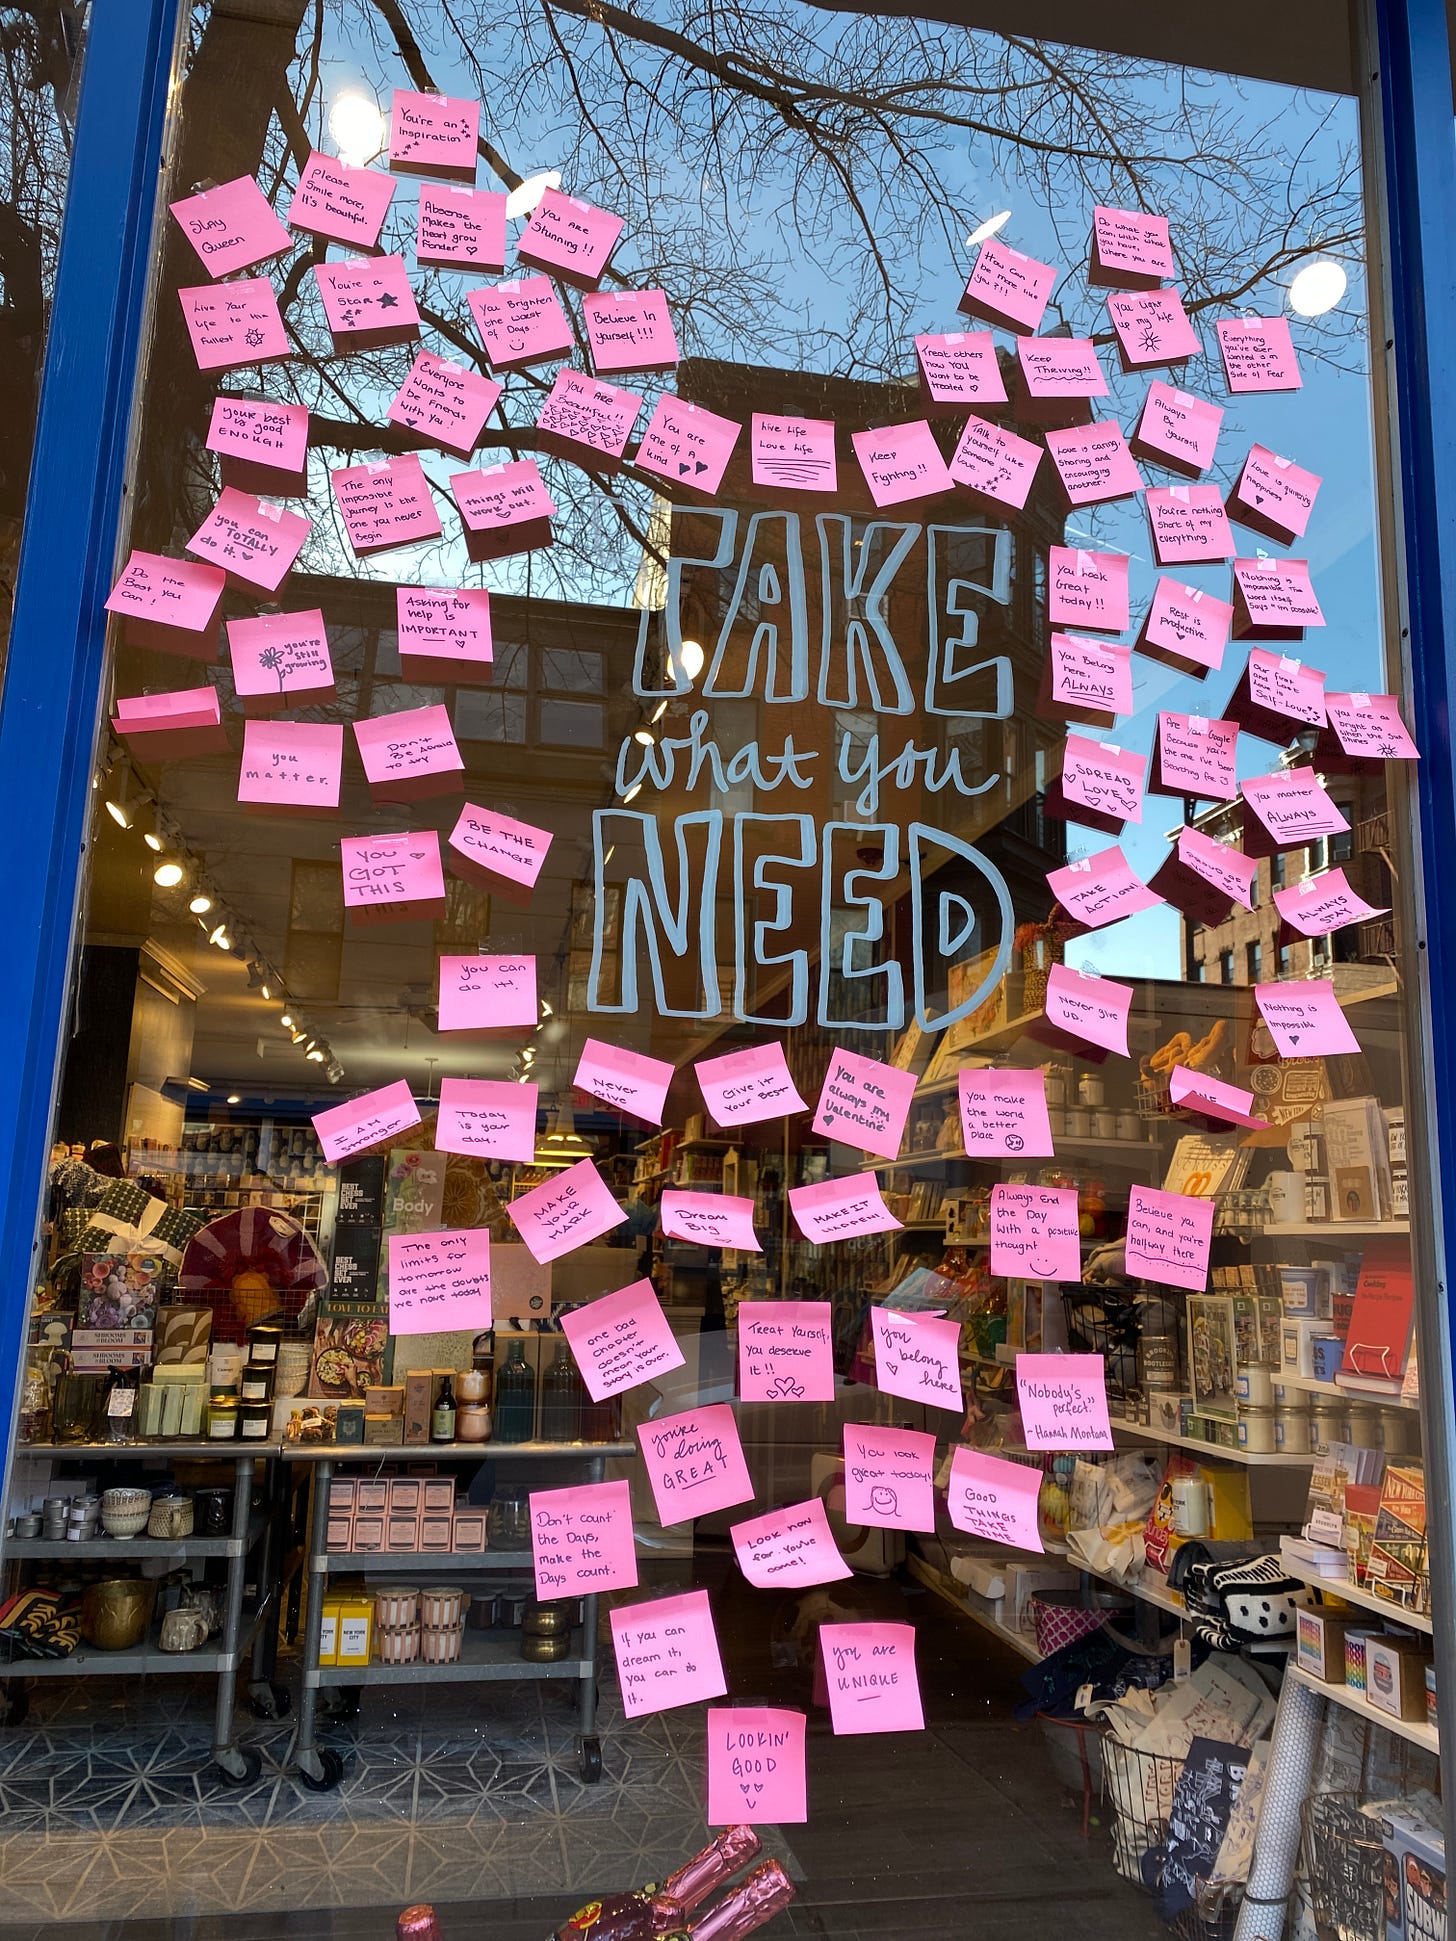 You're an
Inspiration
Slay
Queen
Please
Smile more,
It's beautiful.
Absense
makes the
heart grow
Fonder
You are
Stunning!!
Live Your
life to the
Fullest
You're a
Star
You Brighten
the worst
of Days...
Believe In
yourself!!!
Everyone
Wants to
be Friends
With You!
You are
Beautiful!!
You are
one of a
kind
Live Life
Love Life
Keep
Fighting!!
Talk to
yourself like
Someone you
Love.
How can I
be more like
you?!!
Do what you
can, with what
you have,
where you are
You light
up my life
Everything
you've ever
wanted is on
the other
Side of Fear
Treat others
how YOU
want to be
treated
Keep
Thriving!!
Always
Be
yourself
Love is caring,
Sharing and
encouraging
another.
Love is
happiness
You're nothing
Short of my
everything.
your best
is good
ENOUGH
The only
Impossible
Journey is the
one you never
Begin
things will
work out.
you can
TOTALLY
do it.
Do the
Best you
Can!
Asking for
help is
IMPORTANT
you're
still
growing
you
matter.
Don't
Be Afraid
to try
YOU
GOT
THIS
BE THE
CHANGE
TAKE
what you
NEED
You look
Great today!!
Rest is
Productive.
Nothing is
Impossible The
word itself
Says "Im possible"
You Belong
here,
ALWAYS
Our first
and last
love is
Self-Love
You are as
bright as
when the Sun
Shines
Are You Google?
Because you're
the one I've been
Searching for
SPREAD
LOVE
You matter
ALWAYS
TAKE
ACTION!
PROUD OF
YOU
ALWAYS
STAY
you can
do it!
Never give
up.
Nothing is
Impossible
I AM
stronger
Today
is your
day.
Never
Give
Give it
Your Best
You are
always my
Valentine
You make
the world
a better
place
MAKE
YOUR
MARK
Dream
Big
MAKE IT
HAPPEN!
Always End
the Day
With a positive
thought
Believe you
can, and you're
halfway there
The only
limits for
tomorrow
are the doubts
we have today
one bad
chapter
doesn't
mean your
story is over.
Treat Yourself,
You deserve
It!!
you
belong
here
"Nobody's
perfect."
~Hannah Montana
you're
doing
GREAT
You look
great today!
GOOD
THINGS
TAKE
TIME
Don't count
the Days,
make the
Days count.
Look how
far you've
come!
If you can
dream it,
you can do
it.
you are
UNIQUE
LOOKIN'
GOOD
BEST
CHESS
SET
EVER
Body
BEST
CHESS
SET
EVER
LOVE TO EAT
SHROOMS
IN BLOOM
NEW YORK
CITY